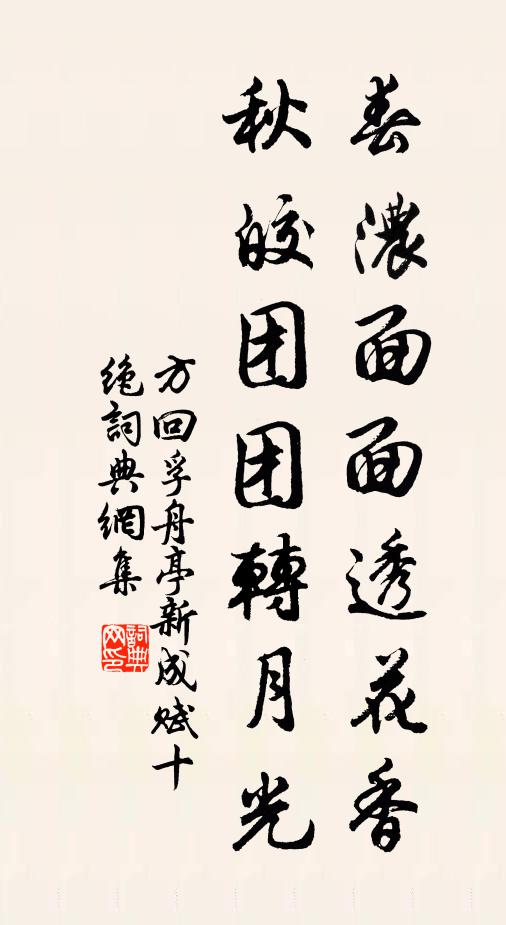 春濃面面透花香
秋皎团团轉月光
方回孚舟亭新成赋十
绝詞典網集
詞典
网印